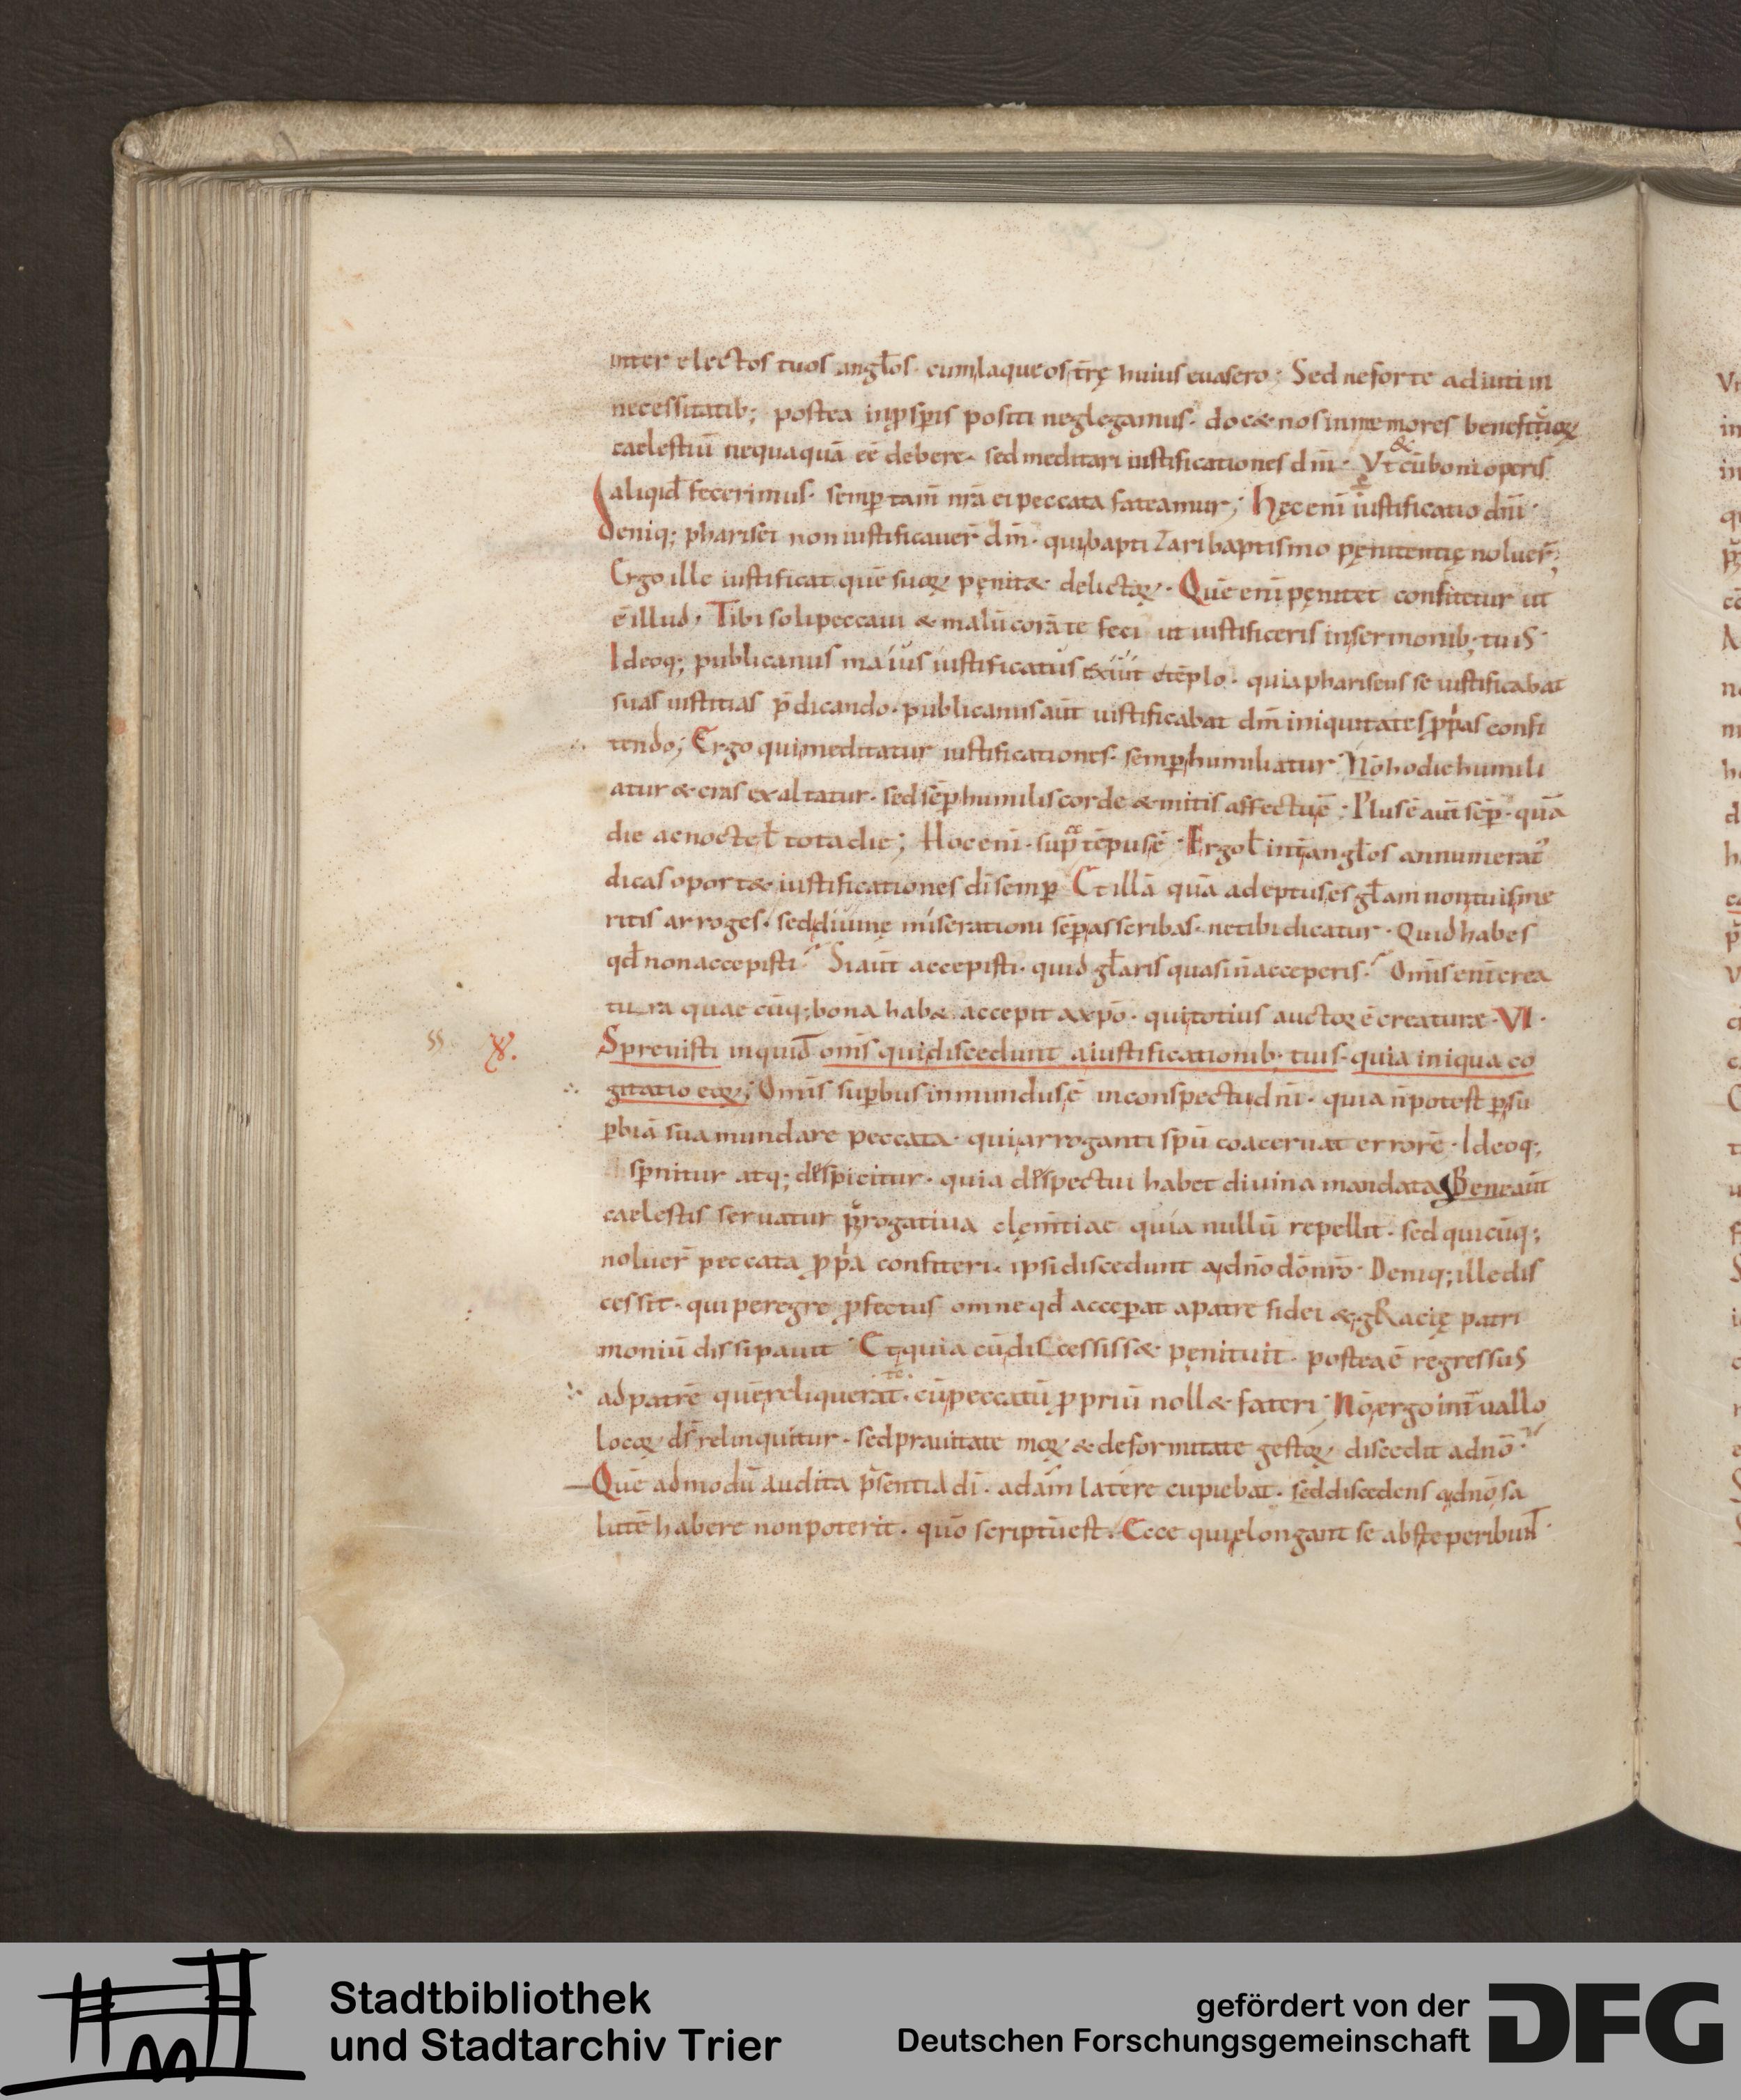 inter electos tuos angl̄os · cum laqueos trę̄ huius euasero ; Sed ne forte adiuti in
necessitatib; postea in ꝓsꝑis positi neglegamus · doc& nos inmemores beneficioꝝ
caelestiū nequaquā eē debere · sed meditari iustificationes dn̄i · Vt & cū boni operis
aliqid fecerimus · semꝑ tam̄ nr̄a ei peccata fateamur ; Hęc eni ē iustificatio dn̄i ·
Deniq; pharisei non iustificauer̄ dm̄ · qui baptizari baptismo pęnitentię noluer̄ ;
Ergo ille iustificat quē suoꝝ pęnit& delictoꝝ · Quē enī pęnitet confitetur ut
ē illud · Tibi soli peccaui & malū corā te feci ut iustificeris in sermonib; tuis ·
Ideoq; publicanus maius iustificatus exiuit e tēplo · quia phariseus se iustificabat
suas iustitias p̄dicando · publicanus aūt iustificabat dm̄ iniquitates ꝓpͥas confi
tendo ; Ergo qui meditatur iustificationes · semꝑ humiliatur Nō hodie humili
atur & cras exaltatur · sed sēꝑ humilis corde & mitis affectu ē · Plus ē aūt sēꝑ · quā
die ac nocte ł tota die ; Hoc enī · supra tēpus ē · Ergo ł int̄ angl̄os annumerat᷒
dicas oport& iustificationes di semꝑ Et illā quā adeptus es gl̄am non tuis me
ritis arroges · sed diuinę miserationi sēꝑ asscribas · ne tibi dicatur · Quid habes
qđ non accepisti Si aūt accepisti · quid gl̄aris quasi n̄ acceperis · Omīs enī crea
tura quaecūq; bona hab& accepit a xp̄o · qui totius auctoꝝ ē creaturae · VI ·
ss · X ·
Spreuisti inquid om̄s qui discedunt a iustificationib; tuis · quia iniqua co
gitatio eoꝝ ; Omīs suꝑbus inmundus ē in conspectu dn̄i · quia n̄ potest ꝑ su
ꝑbiā sua mundare peccata · qui arroganti spū coaceruat errorē · Ideoq;
spnitur atq; despicitur · quia despectui habet diuina mandata Bene aūt
caelestis seruatur prerogatiua clęmtiae quia nullū repellit · sed quicūq;
noluer̄ peccata ꝓpͥa confiteri · ipsi discedunt a dn̄o dō nr̄o · Deniq; ille dis
cessit · qui peregre ꝓfectus omne qđ acceꝑat a patre fidei & gRacię patri
moniū dissipauit Et quia cū discessiss& pęnituit · postea ē regressus
ad patrē quē reliquerat · cū peccatū ꝓpriū noll& fateri ; Nō ergo int̄uallo
locoꝝ ds̄ relinquitur · sed prauitate moꝝ & deformitate gestoꝝ discedit a dn̄o
Quē admodū audita p̄sentia di · adam latere cupiebat · sed discedens a dn̄o sa
lutē habere non poterit · quō scriptū est · Ecce qui elongant se abs te peribunt ·
Stadtbibliothek
und Stadtarchiv Trier
gefördert von der
Deutschen Forschungsgemeinschaft
DFG